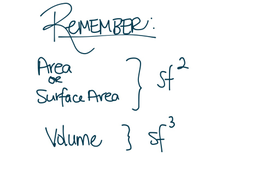 REMEMBER:
Area
or
Surface Area } sf²
Volume } sf³